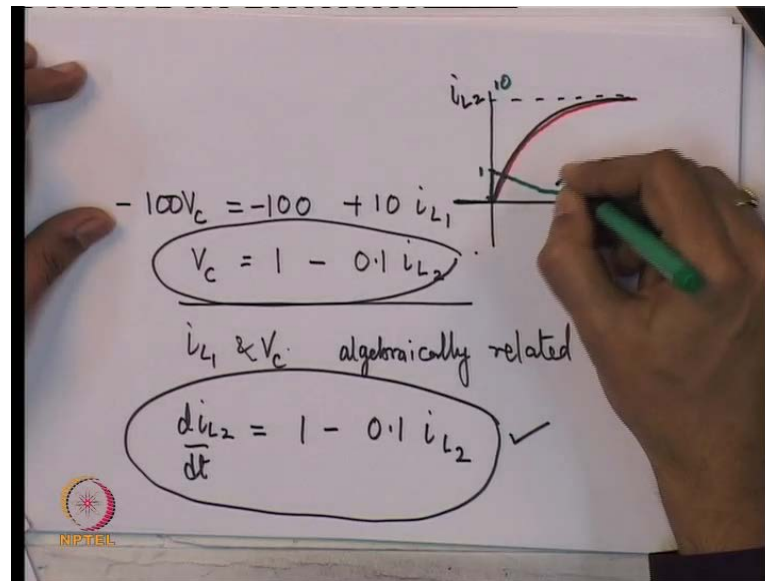 i_L2 10
1
- 100V_C = -100 + 10 i_L1
V_C = 1 - 0.1 i_L2
i_L1 & V_C. algebraically related
di_L2/dt = 1 - 0.1 i_L2 ✓
NPTEL